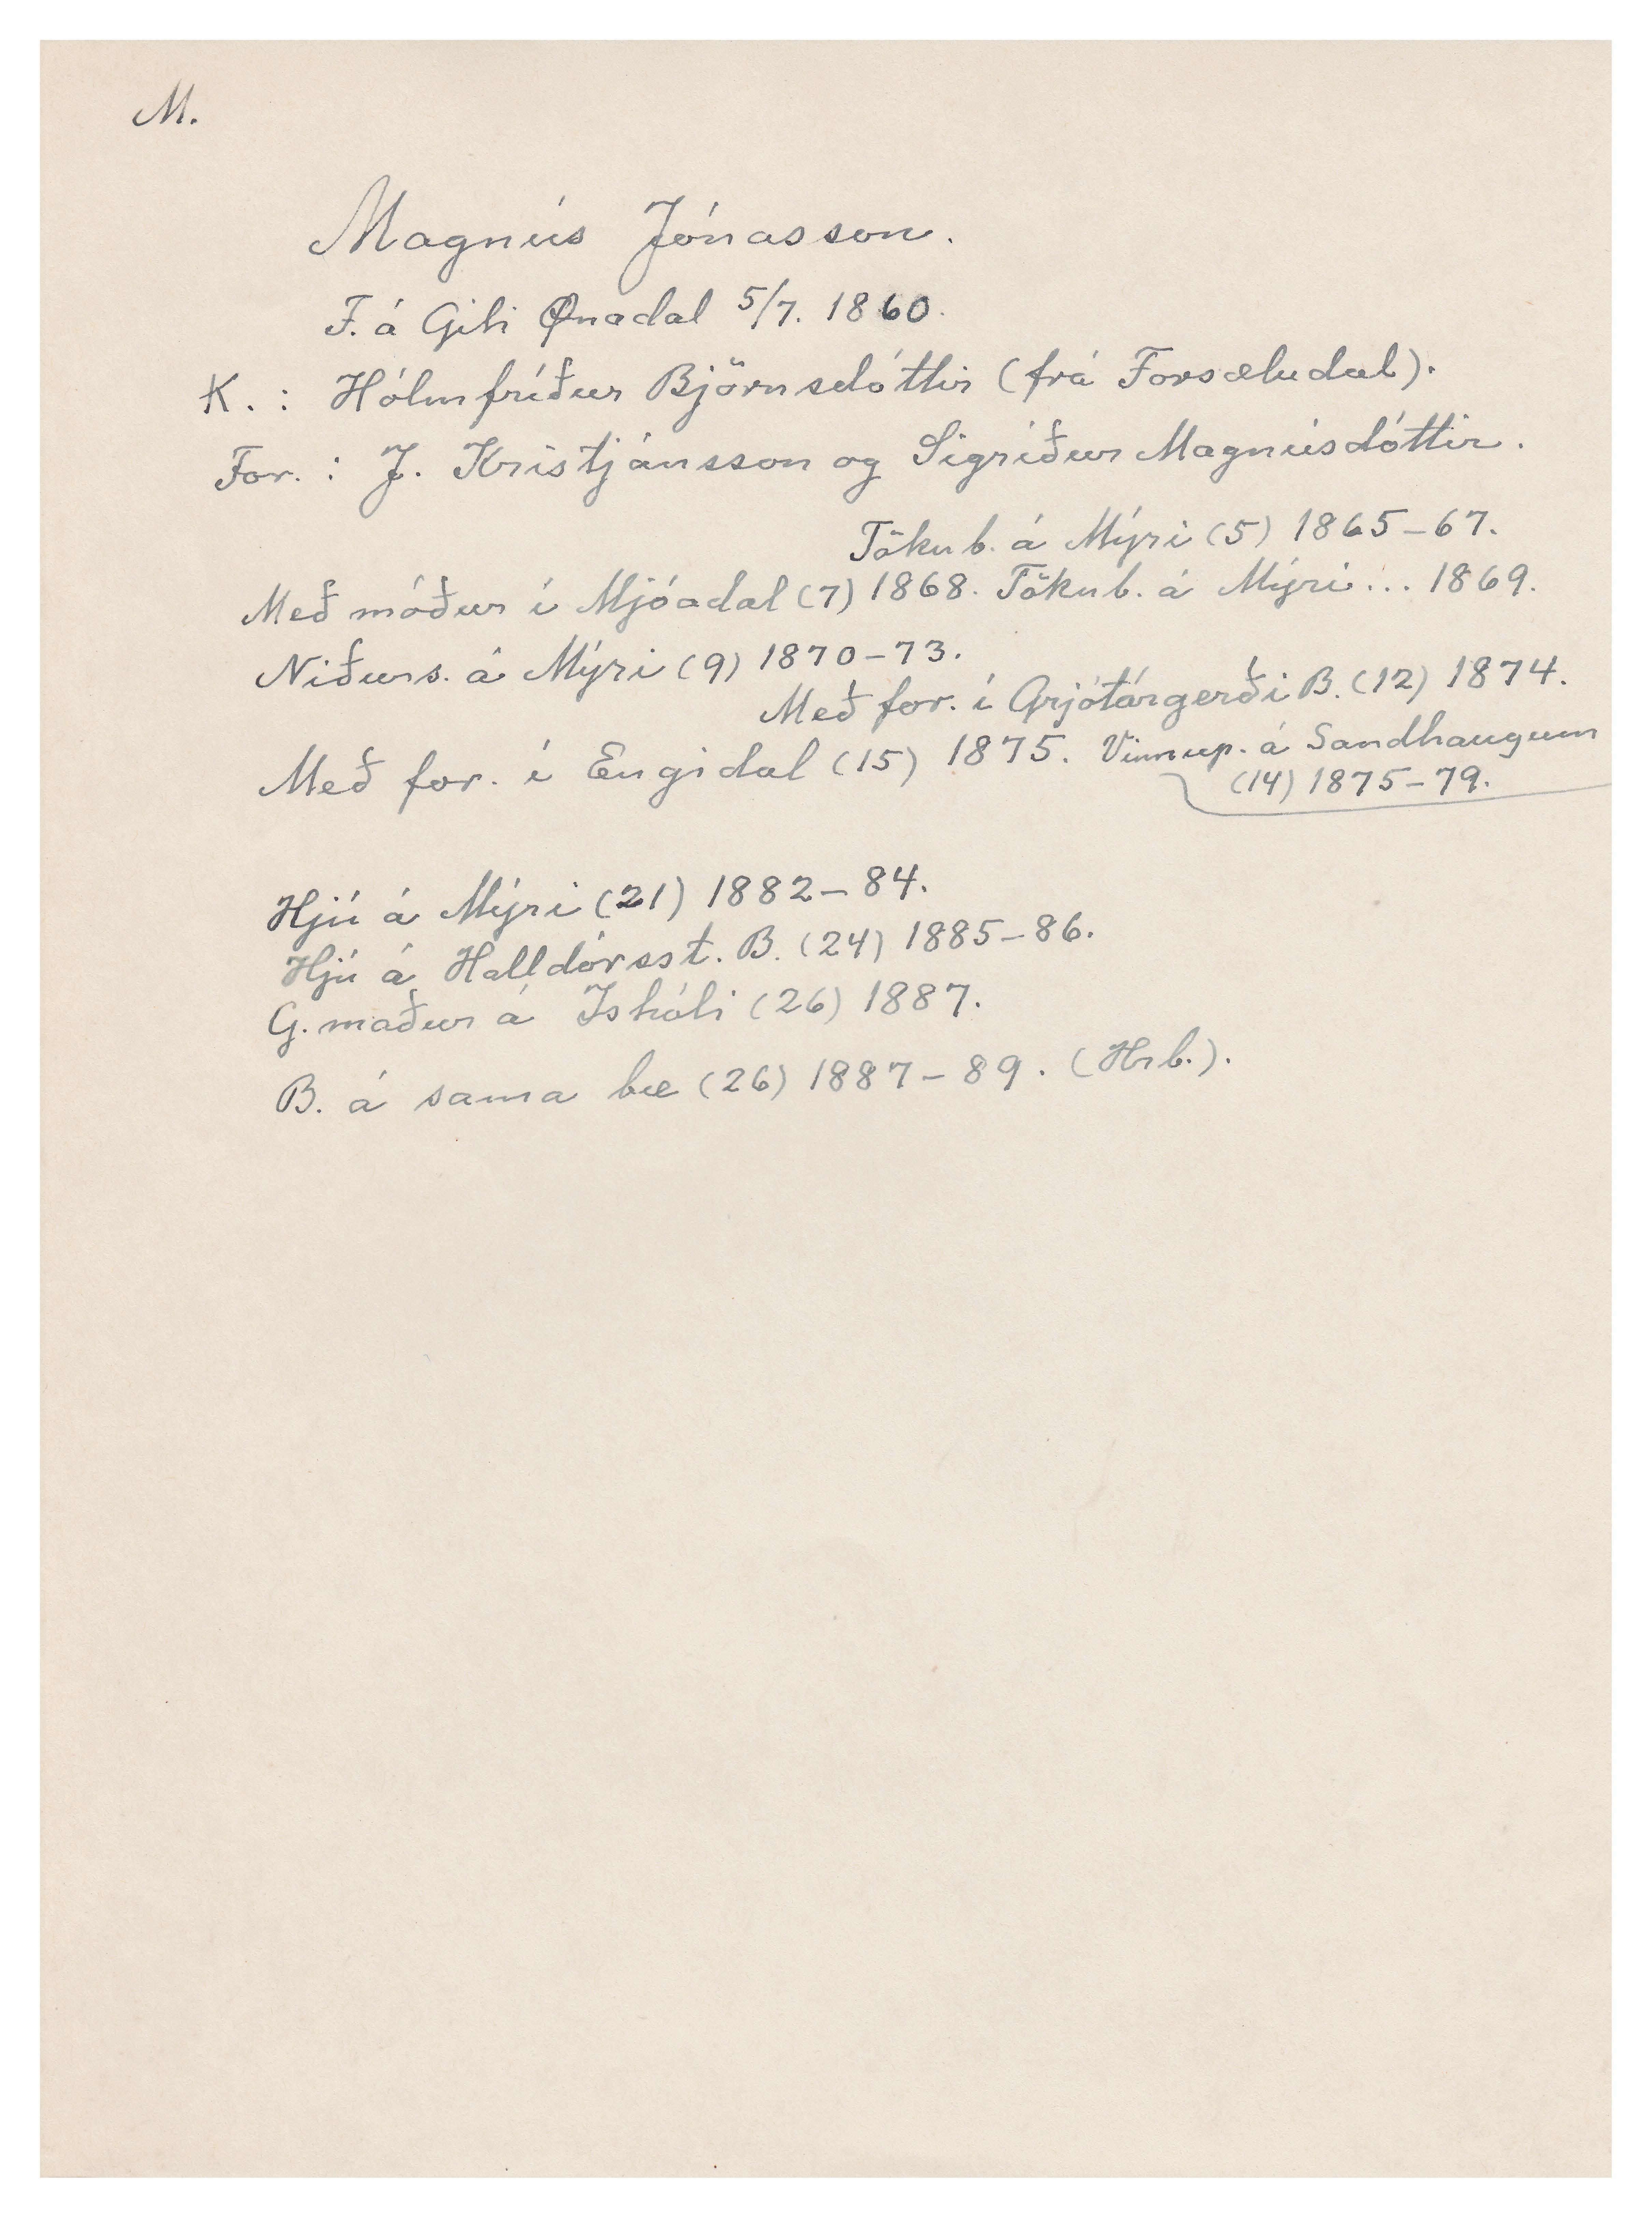 M.
Magnús Jónasson.
F. á Gili Önadal 5/7. 1860.
K. : Hólmfríður Björnsdóttir (frá Forsæludal).
For. : J. Kristjánsson og Sigríður Magnúsdóttir.
Tökub. á Mýri (5) 1865-67.
Með móður í Mjóadal (7) 1868. Tökub. á Mýri... 1869.
Niðurs. á Mýri (9) 1870-73.
Með for. í Grjótárgerði B. (12) 1874.
Með for. í Engidal (15) 1875. Vinnup. á Sandhaugum
(14) 1875-79.
Hjú á Mýri (21) 1882-84.
Hjú á Halldórsst. B. (24) 1885-86.
G. maður á Ishóli (26) 1887.
B. á sama bæ (26) 1887-89. (Hrb.).